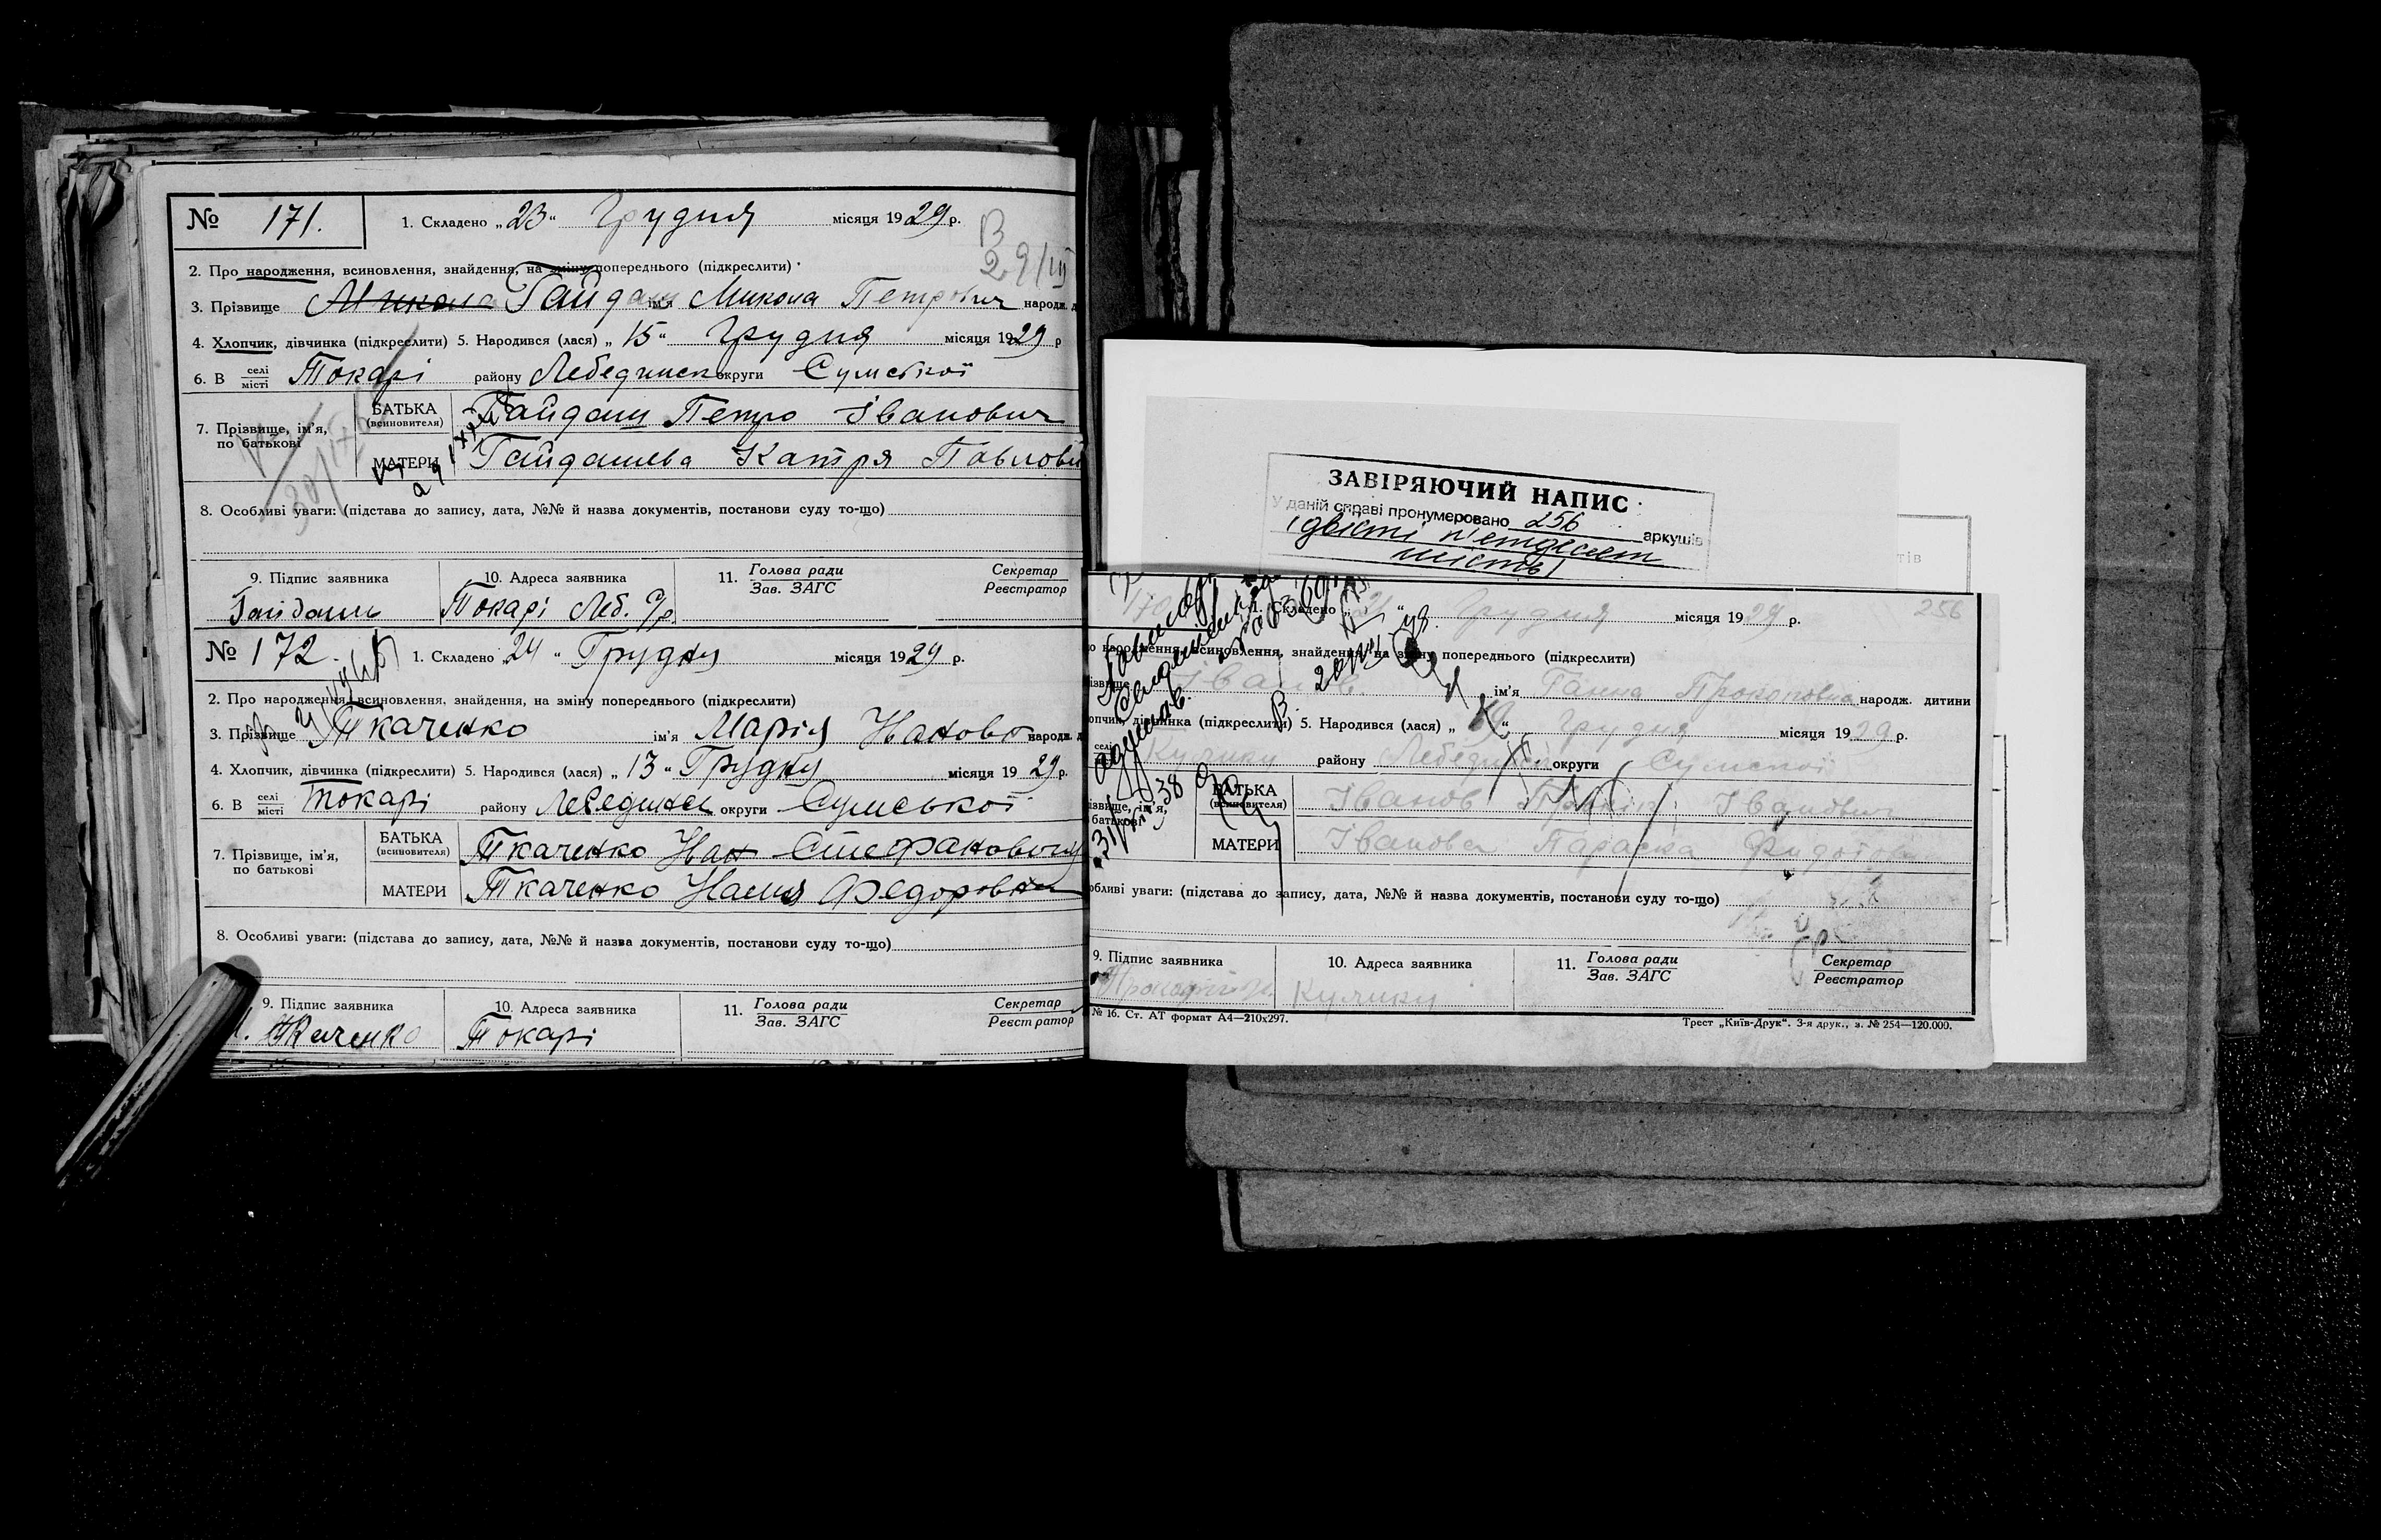 № 171. 1. Складено „23“ Грудня місяця 1929 р.
В 29/III
2. Про народження, всиновлення, знайдення, на зміну попереднього (підкреслити)
3. Прізвище Микола Гайдаш ім'я Микола Петрович народж. д
4. Хлопчик, дівчинка (підкреслити) 5. Народився (лася) „15“ Грудня місяця 1929 р
6. В селі місті Токарі району Лебединск округи Сумської
7. Прізвище, ім'я, по батькові БАТЬКА (всиновителя) Гайдаш Петро Іванович
МАТЕРИ Гайдашева Катря Павлов
8. Особливі уваги: (підстава до запису, дата, №№ й назва документів, постанови суду то-що)
9. Підпис заявника 10. Адреса заявника 11. Голова ради Зав. ЗАГС Секретар Реєстратор
Гайдаш Токарі Леб. р
№ 172. 1. Складено „24“ Грудня місяця 1929 р.
2. Про народження, всиновлення, знайдення, на зміну попереднього (підкреслити)
3. Прізвище Ткаченко ім'я Марія Ивановн народж. д
4. Хлопчик, дівчинка (підкреслити) 5. Народився (лася) „13“ Грудня місяця 1929 р.
6. В селі місті Токарі району Лебединск округи Сумської
7. Прізвище, ім'я, по батькові БАТЬКА (всиновителя) Ткаченко Иван Стефановичу
МАТЕРИ Ткаченко Федоровна
8. Особливі уваги: (підстава до запису, дата, №№ й назва документів, постанови суду то-що)
9. Підпис заявника 10. Адреса заявника 11. Голова ради Зав. ЗАГС Секретар Реєстратор
Ткаченко Токарі
ЗАВІРЯЮЧИЙ НАПИС
У даній справі пронумеровано 256 аркушів
(двісті п'ятдесят
шість)
170 1. Складено „21“ Грудня місяця 1929 р. 256
о народження, всиновлення, знайдення, на зміну попереднього (підкреслити)
ізвище Іванов ім'я Ганна Прокоповна народж. дитини
опчик, дівчинка (підкреслити) 5. Народився (лася) „ “ Грудня місяця 1929 р.
селі Кулики району Лебединск округи Сумської
ізвище, ім'я, батькові БАТЬКА (всиновителя) Іванов Іванович
МАТЕРИ Іванова Параска Федотовн
обливі уваги: (підстава до запису, дата, №№ й назва документів, постанови суду то-що)
9. Підпис заявника 10. Адреса заявника 11. Голова ради Зав. ЗАГС Секретар Реєстратор
Кулики
№ 16. Ст. АТ формат А4—210х297. Трест „Київ-Друк“. 3-я друк., з. № 254—120.000.